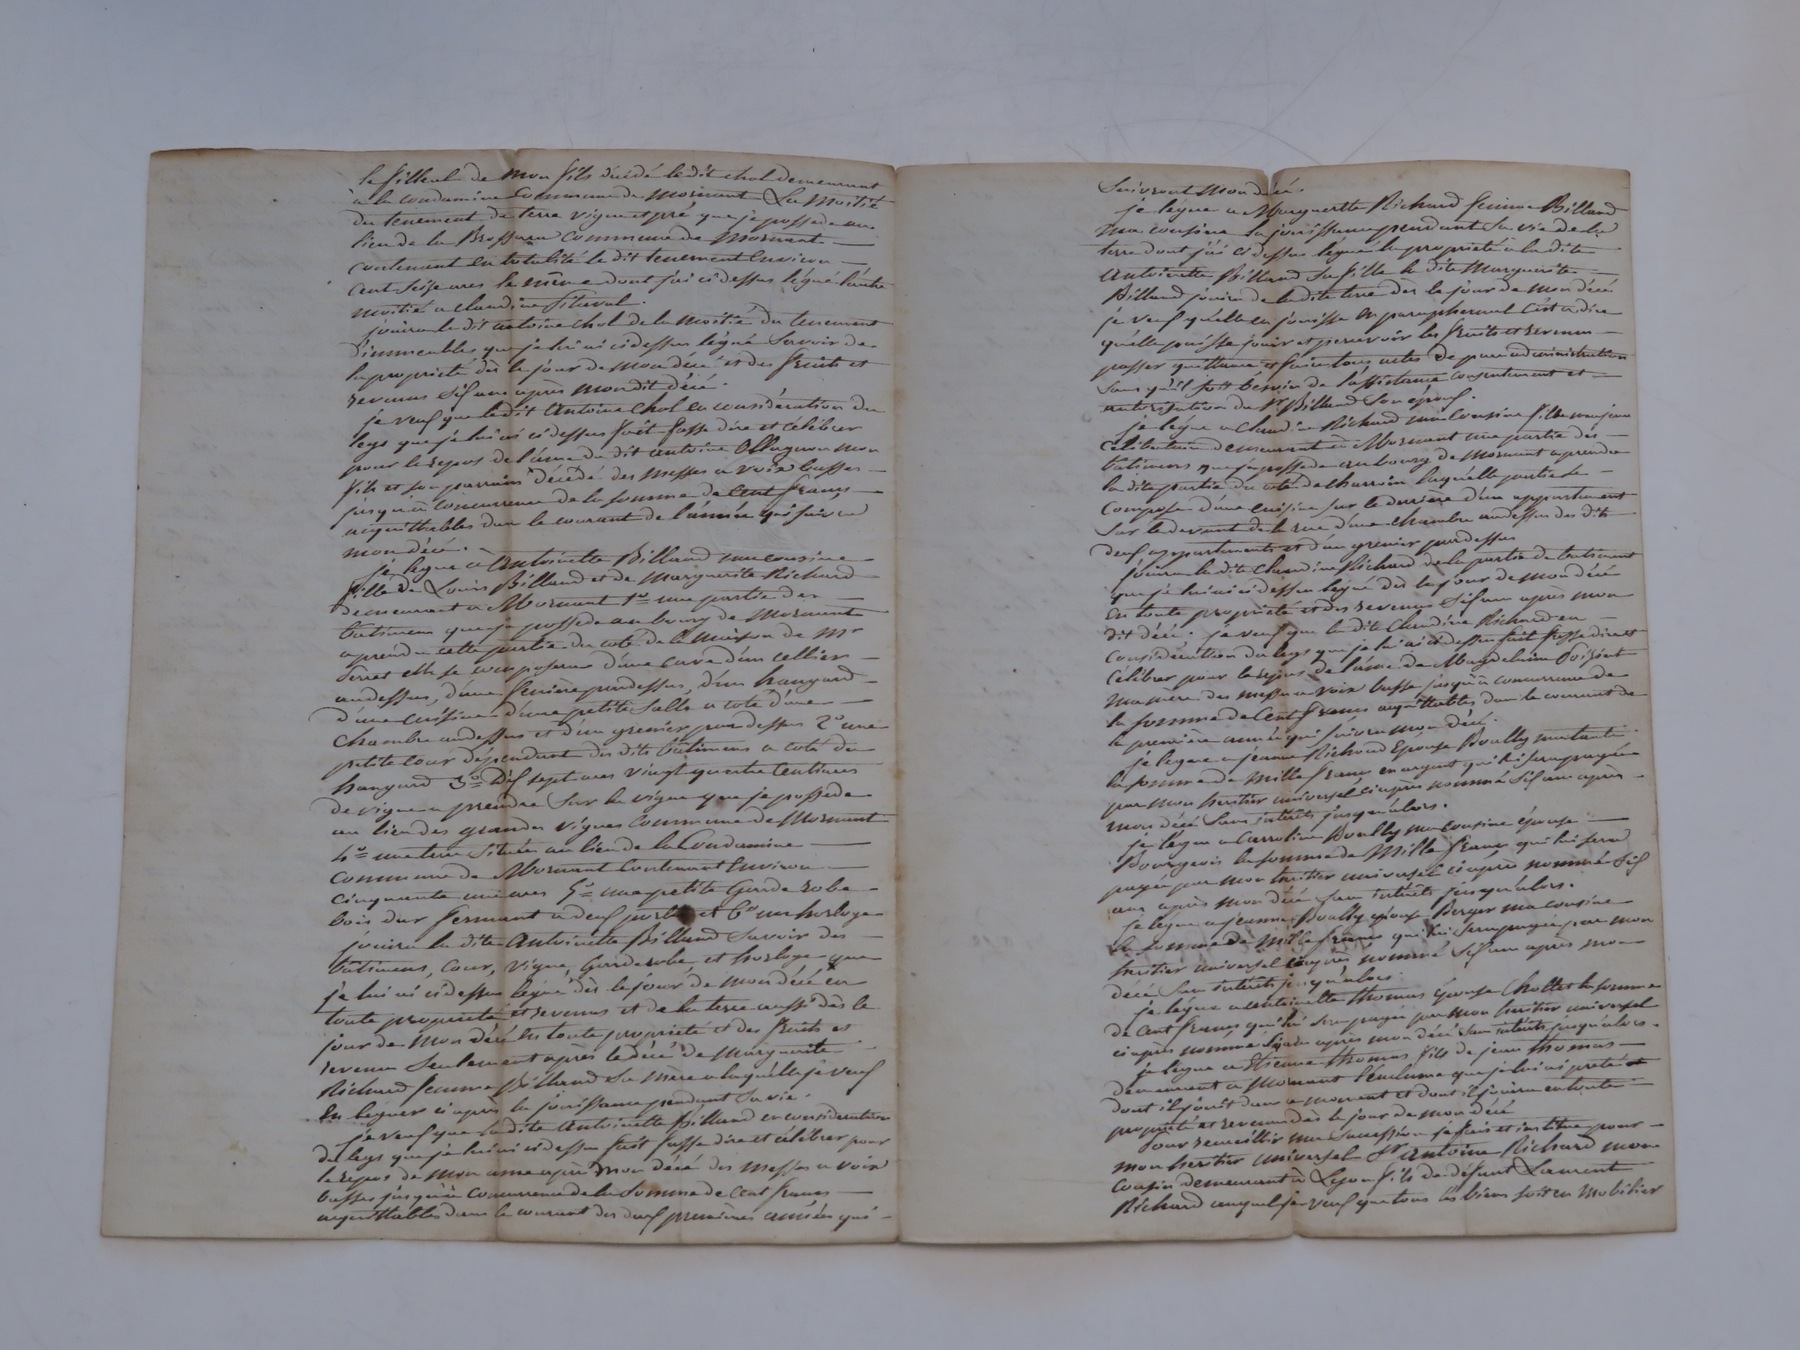 le filleul de mon fils décédé le dit chol demeurant
à la condamine commune de mornant La moitié
du tenement de terre vigne et pré que je possede au
lieu de la commune de mornant
contenant en totalité le dit tenement environ
cent seize ares le même dont j'ai ci dessus légué l'autre
moitié a claudine
jouira le dit antoine chol de la moitié du tenement
d'immeubles que je lui ai ci dessus légué Savoir de
la propriété dès le jour de mon décé et des fruits et
revenus Sif ans après mon dit décé.
je veuf que le dit Antoine Chol en considération du
legs que je lui ai ci dessus fait fasse dire et célébrer
pour le repos de l'âme du dit antoine mon
fils et son parrain décédé des messes a voix basses
jusqu'à concurrence de la somme de cent francs
acquittables dans le courant de l'année qui suivra
mon décé.
je legue a Antoinette Billand ma cousine
fille de Louis Billand et de marguerite Richard
demeurant a Mornant 1º une partie des
batimens que je possede au bourg de mornant
a prendre cette partie du coté de la maison de Mr
elle se composera d'une cave d'un cellier
au dessus, d'une fenière par dessus, d'un hangard
d'une cuisine d'une petite salle a coté d'une
chambre au dessus et d'un grenier par dessus 2º une
petite cour dépendant des dits batimens a coté du
hangard 3º Dif sept ares vingt quatre centiares
de vigne a prendre Sur la vigne que je possede
au lieu des grandes vignes commune de Mornant
4º une terre Située au lieu de la Condamine
commune de Mornant contenant Environ
cinquante ares 5º une petite Garde robe
bois dur fermant a deuf portes et 6º une horloge
jouira la dite Antoinette Billand Savoir des
batimens, Cour, Vigne, Garderobe et horloge que
je lui ai ci dessus légué dès le jour de mon décé en
toute propriété et revenus et de la terre aussi dès le
jour de mon décé En toute propriété et des fruits et
revenus Seulement après le décé de marguerite
Richard femme Billand Sa mère a laquelle je veuf
En leguer ci après la jouissance pendant Sa vie.
je veuf que la dite Antoinette Billand en considération
du legs que je lui ai ci dessus fait fasse dire et célébrer pour
le repos de mon ame après mon décé des messes a voix
basses jusqu'à concurrence de la Somme de Cent francs
acquittables dans le courant des deuf premières années qui
Suivront Mon décé.
je lègue a Marguerite Richard femme Billand
ma cousine la jouissance pendant Sa vie de la
terre dont j'ai ci dessus légué la propriété a la dite
Antoinette Billand Sa fille la dite Marguerite
Billand jouira de la dite terre dès le jour de mon décé
je veuf qu'elle en jouisse En paraphernal c'est a dire
qu'elle puisse jouir et percevoir les fruits et revenus
passer quittance et faire tous actes de pure administration
Sans qu'il Soit besoin de l'assistance consentement et
autorisation du Sr Billand Son epouf.
je légue a Claudine Richard ma Cousine fille majeure
célibataire demeurant a Mornant une partie des
batimens que je possede au bourg de Mornant a prendre
la dite partie du coté de laquelle partie Se
compose d'une cuisine sur le derriere d'un appartement
Sur le devant de la rue d'une chambre au dessus des dits
deuf appartements et d'un grenier par dessus
jouira la dite Claudine Richard de la partie de batiment
que je lui ai ci dessus légué dès le jour de mon décé
En toute propriété et des revenus Sif ans après mon
dit décé. je veuf que la dite Claudine Richard en
considération du legs que je lui ai ci dessus fait fasse dire et
célébrer pour le repos de l'âme de Magdelaine
ma mère des messes a voix basse jusqu'à concurrence de
la somme de Cent francs acquittables dans le courant de
la première année qui Suivra mon décé.
je legue a jeanne Richard Epouse Boully ma tante
la somme de Mille francs en argent qui lui sera payée
par mon heritier universel ci après nommé Sif ans après
mon décé Sans intérêts jusqu'alors.
je légue a Carroline Boully ma cousine épouse
Bourgeois la somme de Mille francs qui lui sera
payée par mon heritier universel ci après nommé Sif
ans après mon décé Sans intérêts jusqu'alors.
je légue a jeanne Boully épouse Berger ma cousine
la somme de Mille francs qui lui sera payée par mon
heritier universel ci après nommé Sif ans après mon
décé Sans intérêts jusqu'alors.
je légue a antoinette Thomas épouse Chollet la somme
de Cent francs qui lui sera payée par mon heritier universel
ci après nommé Sif ans après mon décé Sans intérêts jusqu'alors.
je légue a Etienne Thomas fils de jean Thomas
demeurant a Mornant l'enclume que je lui ai prêté et
dont il jouit dans ce moment et dont il jouira en toute
propriété et revenus dès le jour de mon décé
Pour recueillir ma Succession je fais et institue pour
mon heritier universel Sr Antoine Richard mon
cousin demeurant à Lyon fils de défunt Laurent
Richard auquel je veuf que tous les biens soit en mobilier